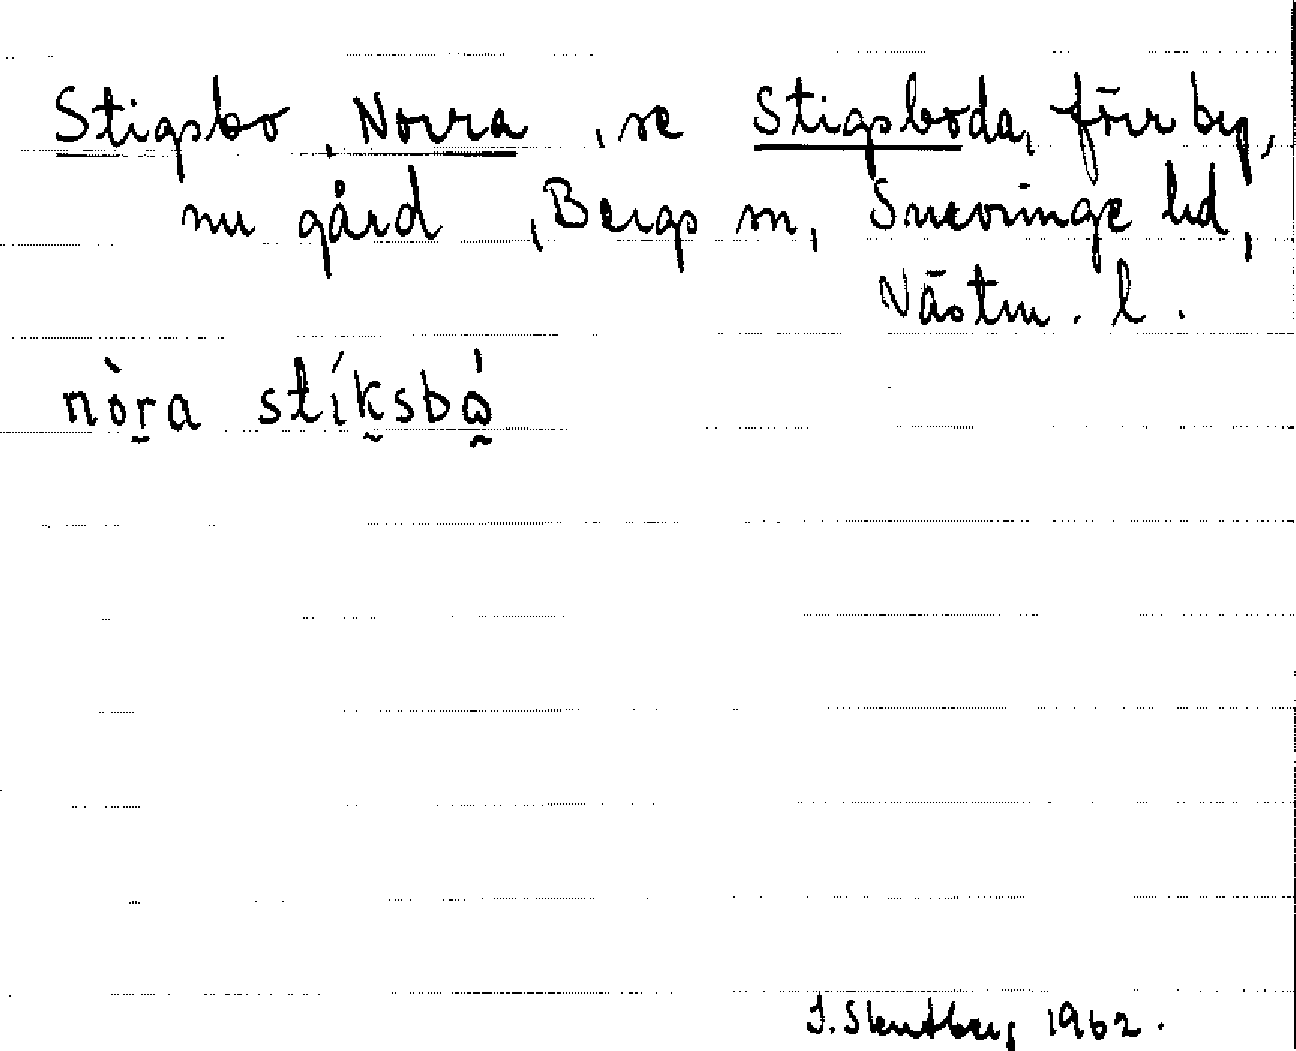 Stigsbo, Norra, se Stigsboda, förr by,
nu gård, Bergs sn, Snevringe hd,
Västm. l.
nò̱ra stíksbǻ
1962.